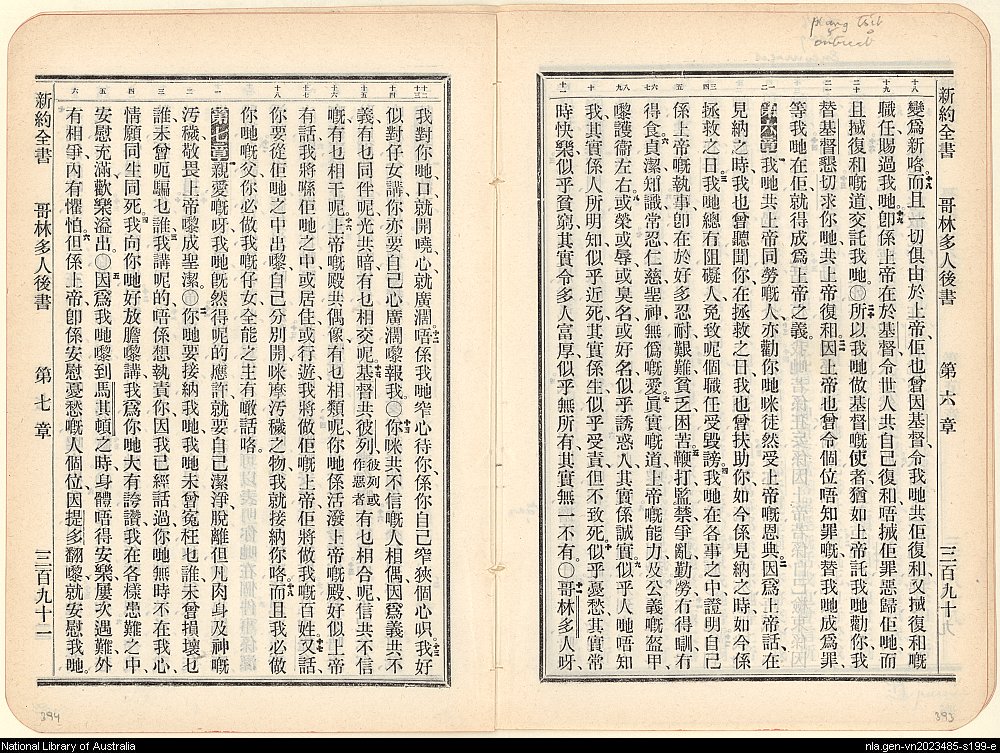 phang tsit
ontreeb
新約全書 哥林多人後書 第六章 三百九十
十八
變爲新咯而且一切俱由於上帝佢也曾因基督令我哋共佢復和又搣復和嘅
十九
職任賜過我哋卽係上帝在於基督令世人共自己復和唔搣佢罪惡歸佢哋而
二十
且搣復和嘅道交託我哋。◯所以我哋做基督嘅使者猶如上帝託我哋勸你我
二一
替基督懇切求你哋共上帝復和因上帝也曾令個位唔知罪嘅替我哋成爲罪
等我哋在佢就得成爲上帝之義。
一二
第六章我哋共上帝同勞嘅人亦勸你哋咪徒然受上帝嘅恩典因爲上帝話在
見納之時我也曾聽聞你在拯救之日我也曾扶助你如今係見納之時如今係
三四
拯救之日我哋總有阻礙人免致呢個職任受毀謗我哋在各事之中證明自己
五
係上帝嘅執事卽在於好多忍耐艱難貧乏困苦鞭打監禁爭亂勤勞有得瞓有
六七
得食貞潔知識常忍仁慈聖神無僞嘅愛眞實嘅道上帝嘅能力及公義嘅盔甲
八九
嚟護衞左右或榮或辱或臭名或好名似乎誘惑人其實係誠實似乎人哋唔知
十
我其實係人所明知似乎近死其實係生似乎受責但不致死似乎憂愁其實常
十一
時快樂似乎貧窮其實令多人富厚似乎無所有其實無一不有。◯哥林多人呀
十二十三
我對你哋口就開嘵心就廣濶唔係我哋窄心待你係你自己窄狹個心呮我好
十四
似對仔女講你亦要自己心廣濶嚟報我◯你咪共不信嘅人相偶因爲義共不
十五
義有乜同伴呢光共暗有乜相交呢基督共彼列彼列或作惡者有乜相合呢信共不信
十六
嘅有乜相干呢上帝嘅殿共偶像有乜相類呢你哋係活潑上帝嘅殿好似上帝
十七
有話我將喺佢哋之中或居住或行遊我將做佢嘅上帝佢將做我嘅百姓又話
十八
你要從佢哋之中出嚟自己分別開咪摩汚穢之物我就接納你咯而且我必做
你哋嘅父你必做我嘅仔女全能之主有噉話咯。
一
第七章親愛嘅呀我哋旣然得呢的應許就要自己潔淨脫離但凡肉身及神嘅
二
汚穢敬畏上帝嚟成聖潔。◯你哋要接納我哋我哋未曾寃枉乜誰未曾損壞乜
三
誰未曾呃騙乜誰我講呢的唔係想執責你因我已經話過你哋無時不在我心
四
情願同生同死我向你哋好放膽嚟講我爲你哋大有誇讚我在各樣患難之中
五
安慰充滿歡樂溢出。◯因爲我哋嚟到馬其頓之時身體唔得安樂屢次遇難外
六
有相爭內有懼怕但係上帝卽係安慰憂愁嘅人個位因提多翻嚟就安慰我哋。
新約全書 哥林多人後書 第七章 三百九十二
394
393
National Library of Australia
nla.gen-vn2023485-s199-e